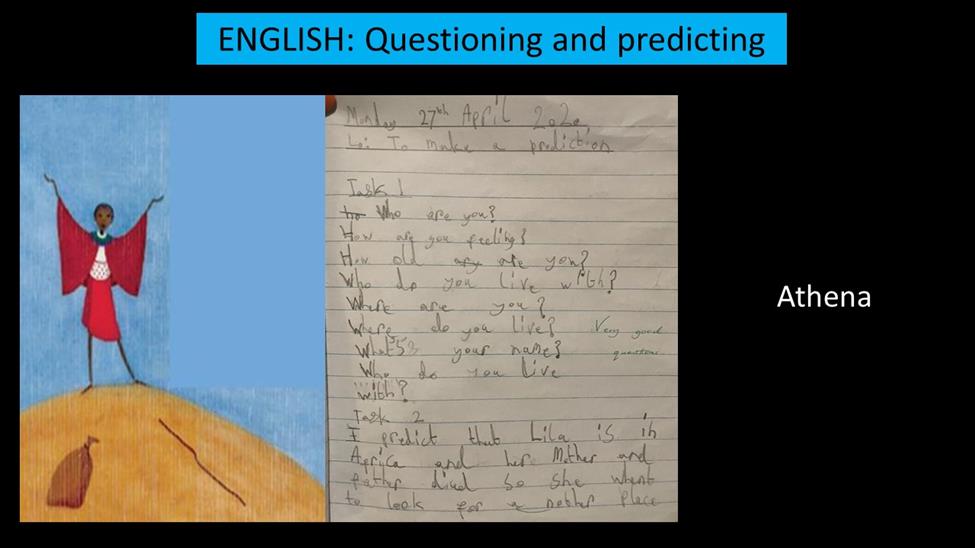 ENGLISH: Questioning and predicting
Monday 27th April 2020
Lo: To make a prediction
Task 1
Who are you?
How are you feeling?
How old are you?
Who do you live with?
Where are you?
Where do you live?
Very good
question
What's your name?
Who do you live
with?
Task 2
I predict that Lila is in
Africa and her Mother and
father died so she whent
to look for a nother place
Athena